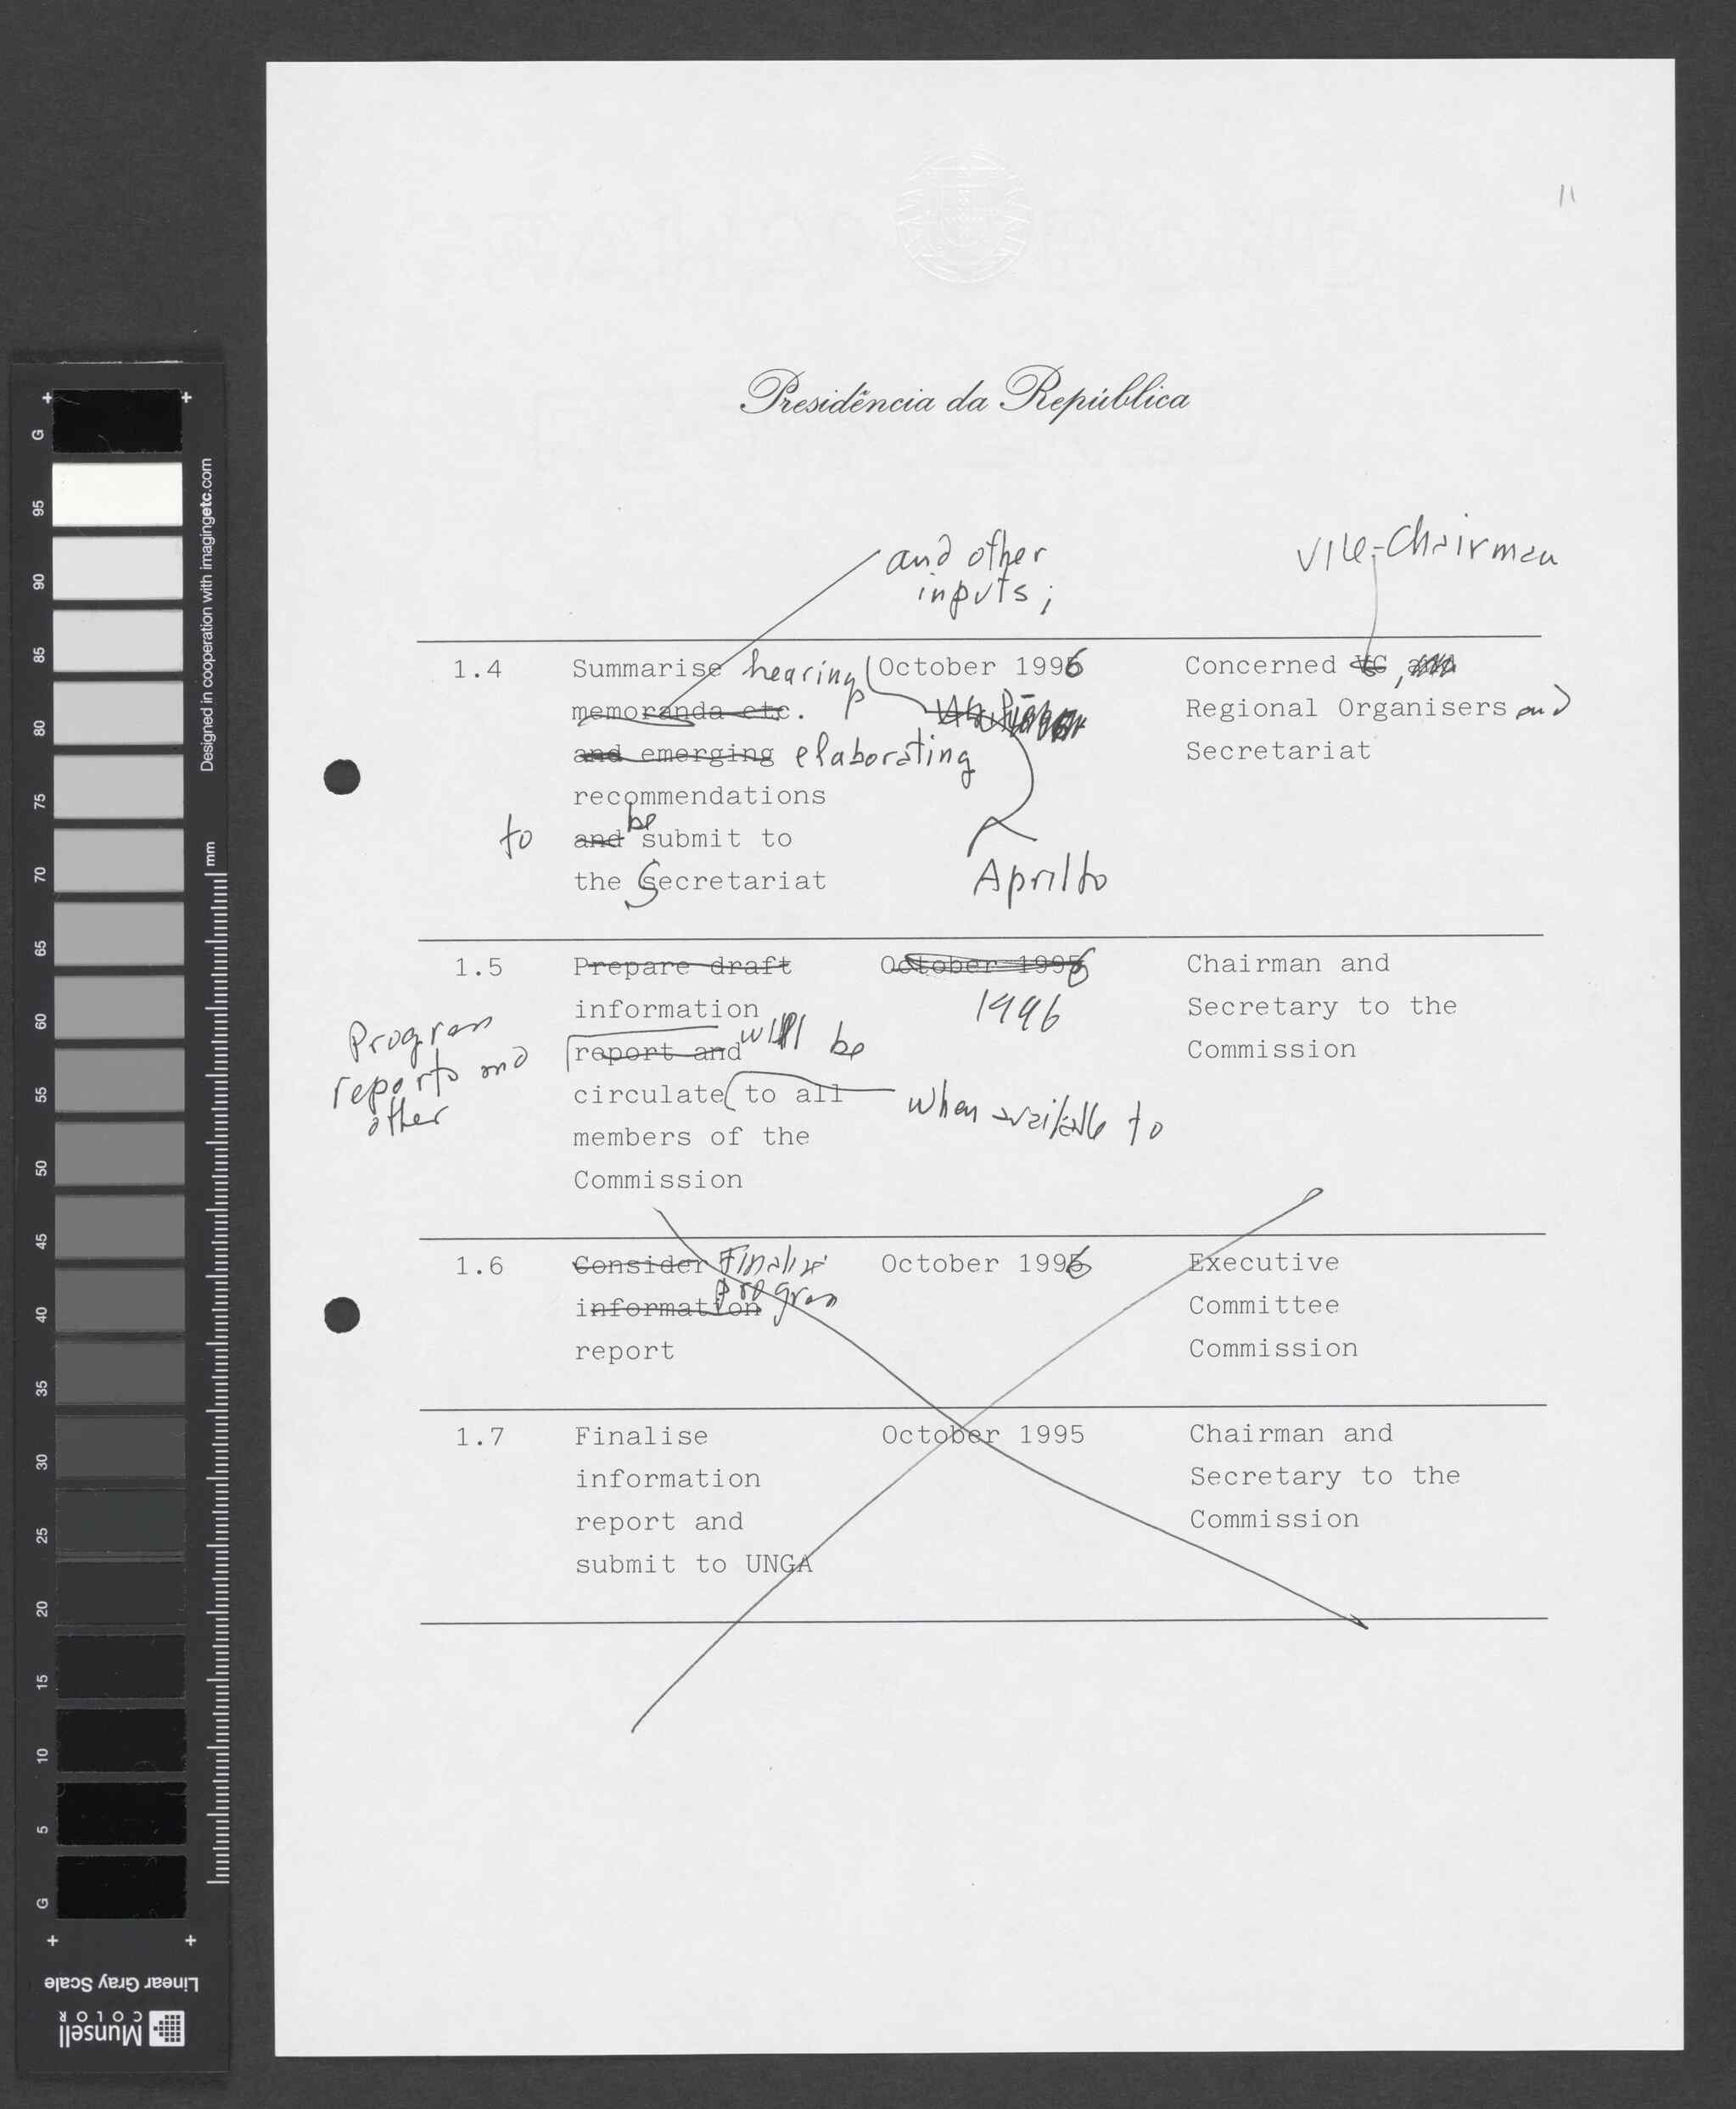 11
Presidência da República
and other
inputs;
Vice-Chairman
1.4 Summarise hearing October 1996 Concerned VC,
memoranda etc. Regional Organisers and
and emerging elaborating Secretariat
recommendations
to and be submit to
the Secretariat April to
1.5 Prepare draft October 1996 Chairman and
information 1996 Secretary to the
Program
reports and
other
report and will be Commission
circulate to all when available to
members of the
Commission
1.6 Consider Finalise October 1996 Executive
information program Committee
report Commission
1.7 Finalise October 1995 Chairman and
information Secretary to the
report and Commission
submit to UNGA
G 95 90 85 80 75 70 65 60 55 50 45 40 35 30 25 20 15 10 5 G
Designed in cooperation with imagingetc.com
mm
Linear Gray Scale
Munsell
COLOR